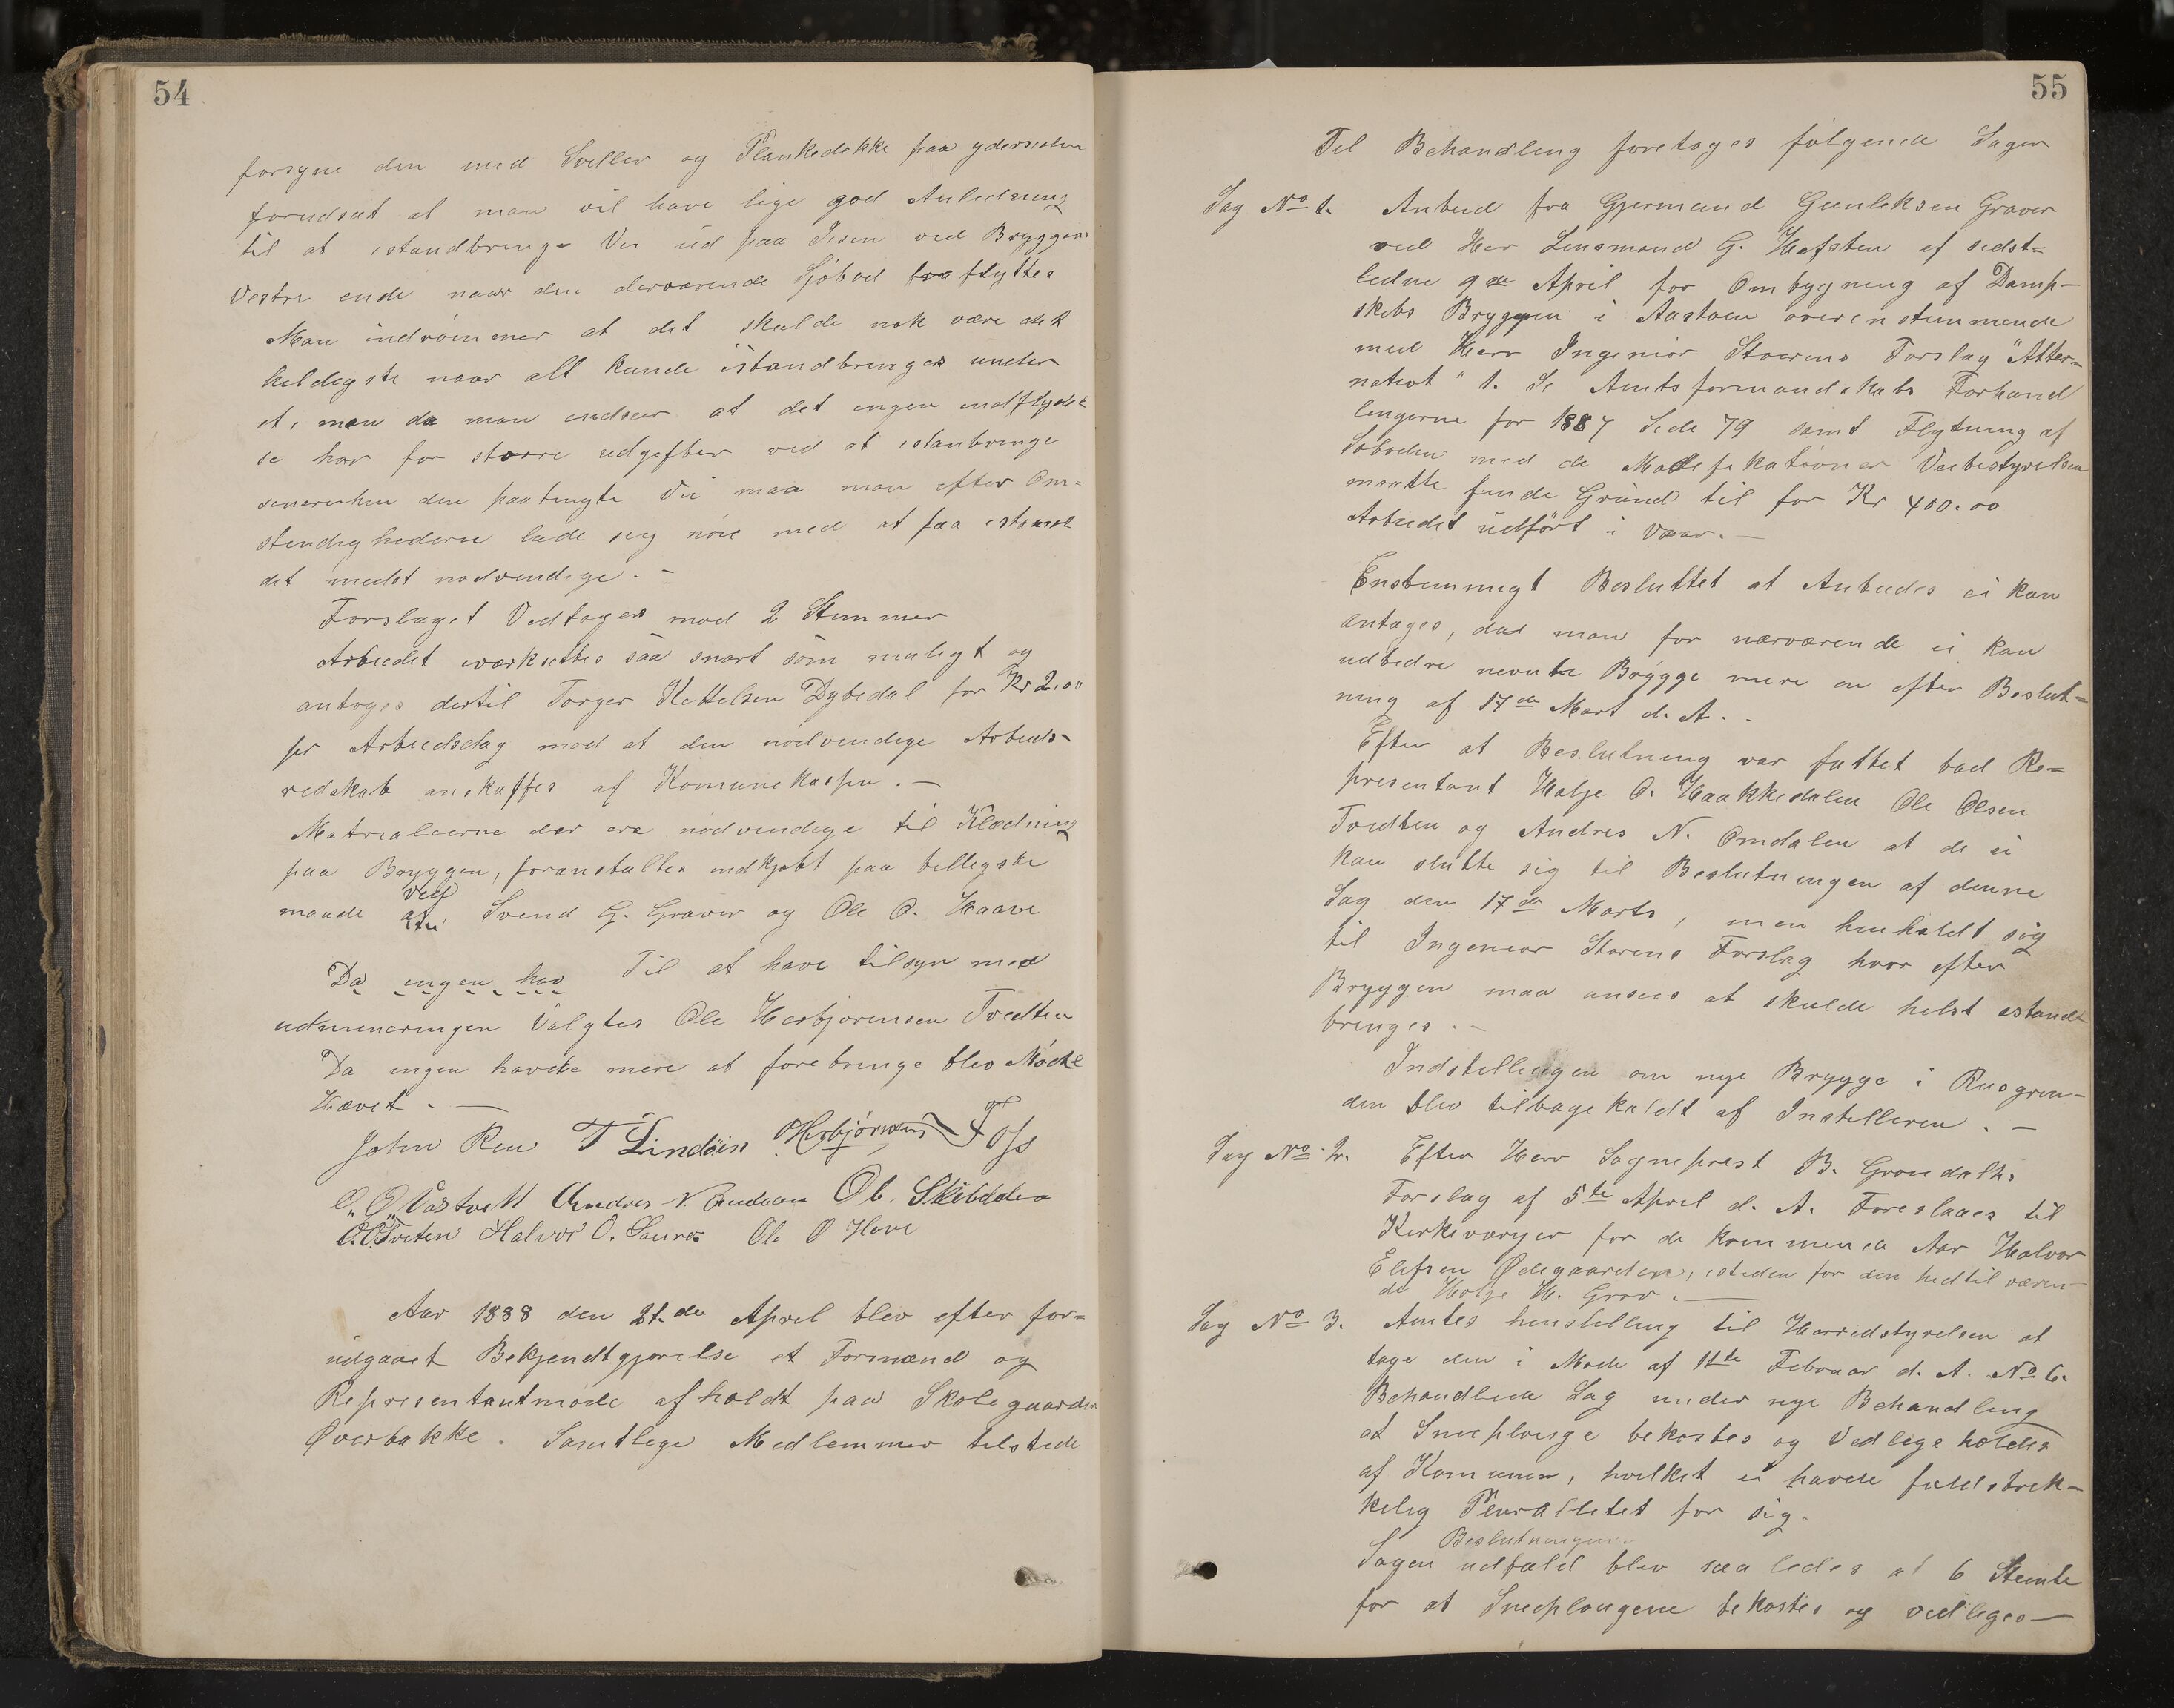 54
forsyne den med Sviller og Plankedekke paa ydersiden
forudsat at man vil have lige god Anledning
til at istandbringe Vei ud paa Isen ved Bryggens
Vestre ende naar den derværende Sjøbod fraflyttes
Man indrømmer at det skulde nok være det
heldigste naar alt kunde istandbringes under
et, men da man indseer at det ingen indflydel
se har for større udgifter ved at istanbringe
senerehen den paatengte Vei maa man efter Om=
stendighederne lade sig nøie med at faa istand
det medst nødvendige. -
Forslaget Vedtoges mod 2 Stemmer
Arbeidet iværksettes saa snart som muligt og
antoges dertil Torger Kettelsen Dybedal for Kr 2,0"
pr Arbeidsdag mod at den nødvendige Arbeids-
redskab anskaffes af Komunekassen. -
Matrialierne der ere nødvendige til Klædning
paa Bryggen, foranstaltes indkjøbt paa billigste
ved
maade Svend G. Graver og Ole O. Haave
Da ingen hav Til at have tilsyn med
udmineringen Valgtes Ole Herbjørensen Tvedten
Da ingen havde mere at forebringe blev Mødet
Hævet. -
John Rui T Lindöin O Herbjørnsen Foss
O. O. Vastveit Andres N Omdalen Ol. Skibddea
O. O. Tveten Halvor O. Ole O Hove
Aar 1888 den 21.de April blev efter for=
udgaaet Bekjendtgjørelse et Formænd og
Representantmøde afholdt paa Skolegaarden
Øverbakke. Samtlige Medlemmer tilstede
55
Til Behandling foretoges følgende Sager
Sag No 1. Anbud fra Gjermund Gunleksen Graver
ved Her Lensmand G. Hafsten af sidst=
ledne 9de April for Ombygning af Damp-
skibs Bryggen i Aastoen overenstemmende
med Herr Ingeniør Storens Forslag "Alter-
nativt" 1. Se Amtsformandskabs Forhand
lingerne for 1887 Side 79 samt Flytning af
Søboden med de Modifikationer Veibestyrelsen
maatte finde Grund til for Kr 400.00
Arbeidet udført i Vaar. -
Enstemmigt Besluttet at Anbudes ei kan
antages, da man for nærværende ei kan
udbedre nevnte Brygge mere en efter Beslut=
ning af 17de Mart d. A. -
Efter at Beslutning var fattet bad Re=
presentant Halje O. Haakkedalen Ole Olsen
Tvedten og Andres N. Omdalen at de ei
kan slutte sig til Beslutningen af denne
Sag den 17de Marts, men henholdt sig
til Ingeniør Storens Forslag hvor efter
Bryggen maa ansees at skulde helst istand-
bringes. -
Indstillingen om nye Brygge i Rusgren-
den blev tilbagekaldt af Instilleren. -
Sag No 2. Efter Herr Sogneprest B. Grondalhs
Forslag af 5te April d. A. Foreslaaes til
Kirkeværger for de kommende Aar Halvor
Elefsen Ødegaarden, isteden for den hidtil væren-
de Halje H. Grov. -
Sag No 3. Amtes henstilling til Herredstyrelsen at
tage den i Møde af 11te Februar d. A. No 6.
Behandlede Sag under nye Behandling
at Sneeplouge bekostes og Vedligeholdes
af Komunen, hvilket ei havde fuldstrek-
kelig Plurallitet for sig.
Beslutningen.
Sagen udfald blev saaledes at 6 Stemte
for at Sneeplougene bekostes og vedliges-